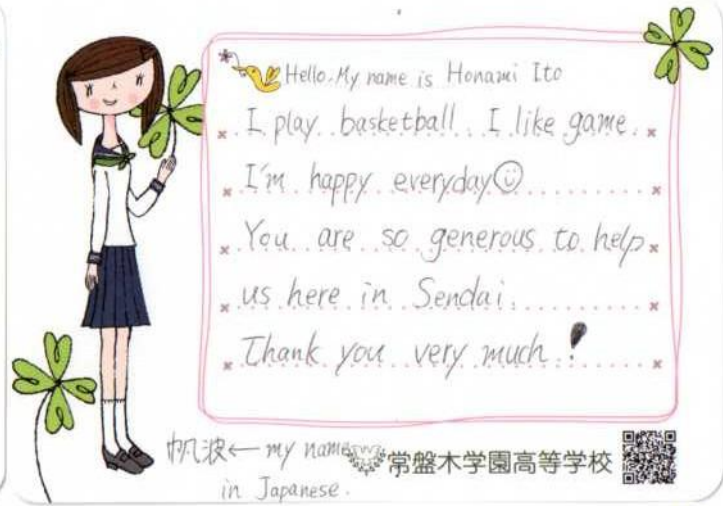 Hello. My name is Honami Ito
I play basketball. I like game.
I'm happy everyday☺
You are so generous to help
us here in Sendai.
Thank you very much!
帆波←my name
in Japanese.
常盤木学園高等学校